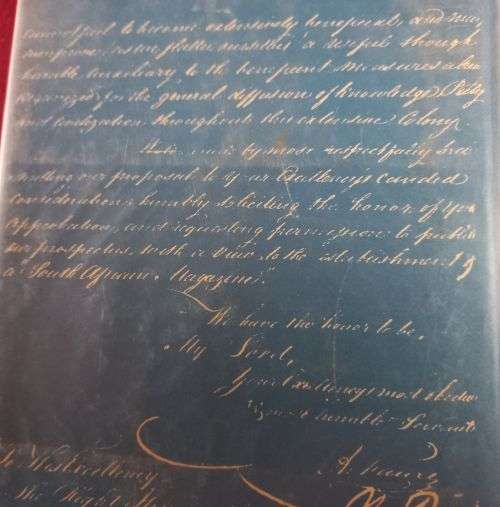 cannot fail to become extensively beneficial, and may
a useful though
humble auxiliary, to the benificent measures alrea
arranged for the general diffusion of Knowledge, Piety
and civilization throughout this extensive Colony.
most respectfully
our proposal to your Excellency's candid
consideration, humbly soliciting the honor of your
Approbation, and requesting permission to publi
our prospectus, with a view to the establishment of
a "South African Magazine".
We have the honor to be,
My Lord,
Your Excellency's most obedien
most humble Servants
A. Faure
To His Excellency
The Right